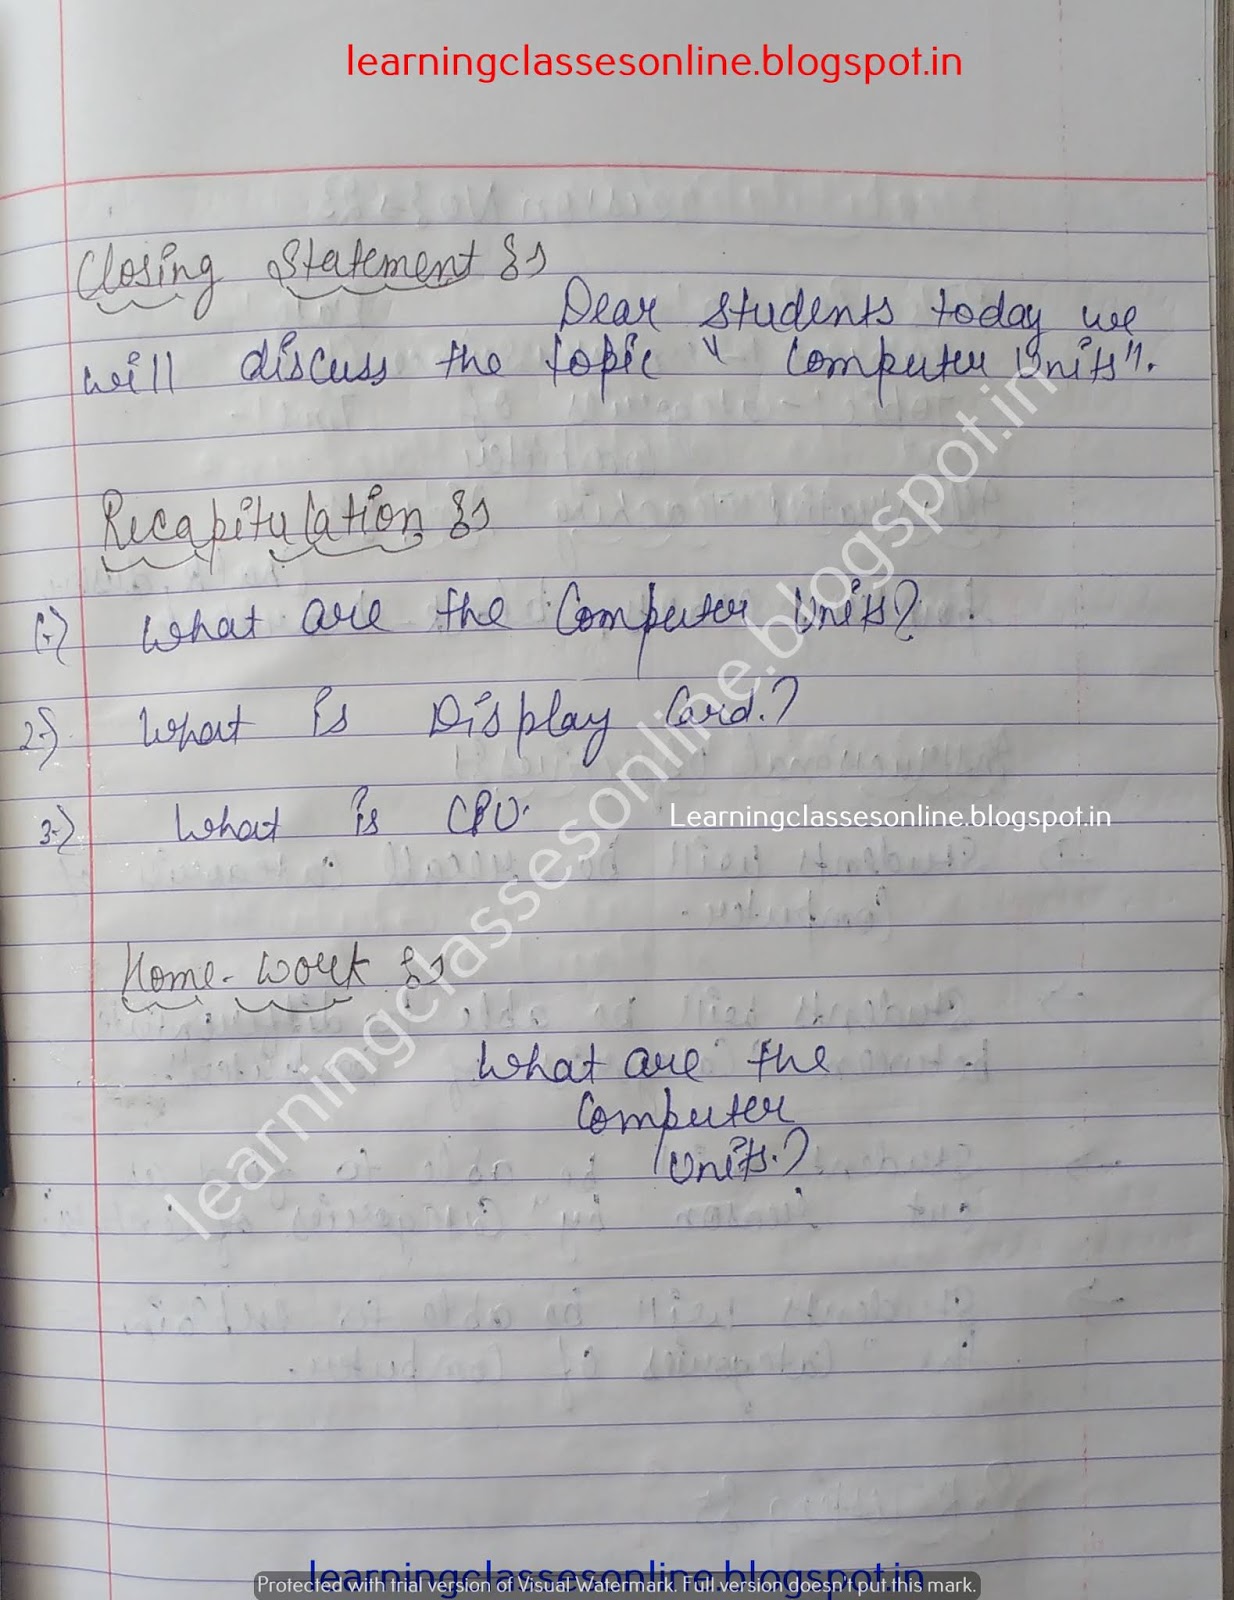 learningclassesonline.blogspot.in
Closing Statement :-
Dear students today we
will discuss the topic " Computer Units".
Recapitulation :-
(1.) What are the Computer Units?
2.) What is Display Card.?
3.) What is CPU.
Learningclassesonline.blogspot.in
Home-Work :-
What are the
Computer
Units.?
learningclassesonline.blogspot.in
learningclassesonline.blogspot.in
Protected with trial version of Visual Watermark. Full version doesn't put this mark.